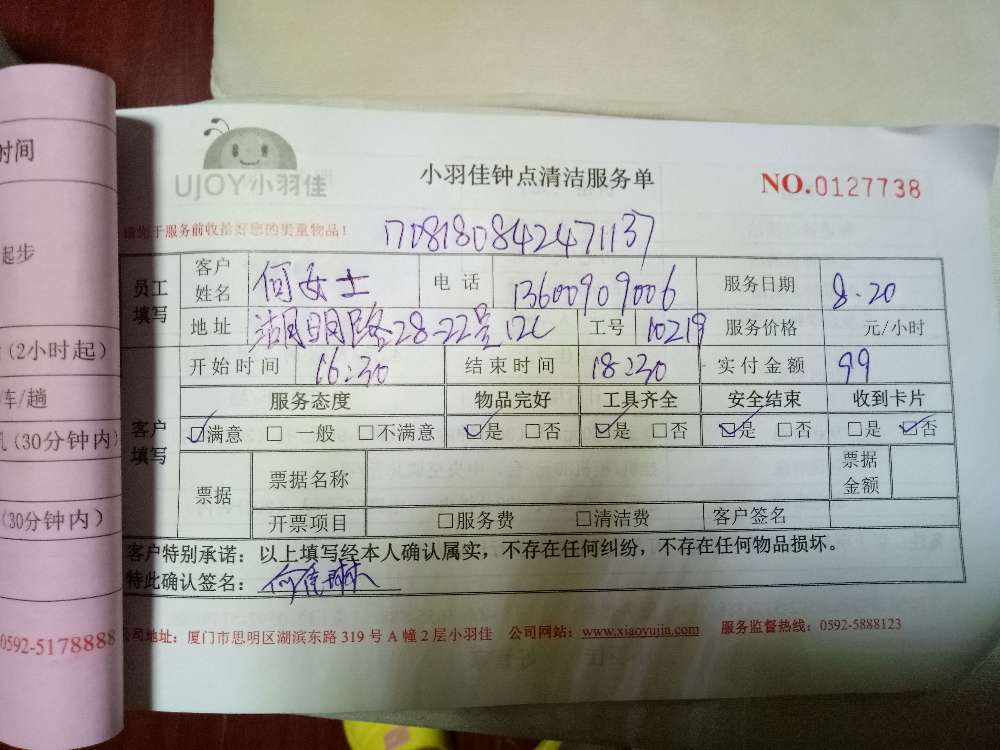 时间
起步
(2小时起)
车/趟
(30分钟内)
(30分钟内)
0592-5178888
UJOY小羽佳
小羽佳钟点清洁服务单
NO.0127738
请您于服务前收拾好您的贵重物品!
170818084247 1137
员工填写
客户姓名 何女士 电话 13600909006 服务日期 8.20
地址 湖明路28-22号12C 工号 10219 服务价格 元/小时
客户填写
开始时间 16:30 结束时间 18:30 实付金额 99
服务态度 物品完好 工具齐全 安全结束 收到卡片
☑满意 □ 一般 □不满意 ☑是 □否 ☑是 □否 ☑是 □否 □是 ☑否
票据 票据名称 票据金额
开票项目 □服务费 □清洁费 客户签名
客户特别承诺:以上填写经本人确认属实,不存在任何纠纷,不存在任何物品损坏。
特此确认签名:
公司地址:厦门市思明区湖滨东路 319 号 A 幢 2 层小羽佳 公司网站:www.xiaoyujia.com 服务监督热线:0592-5888123